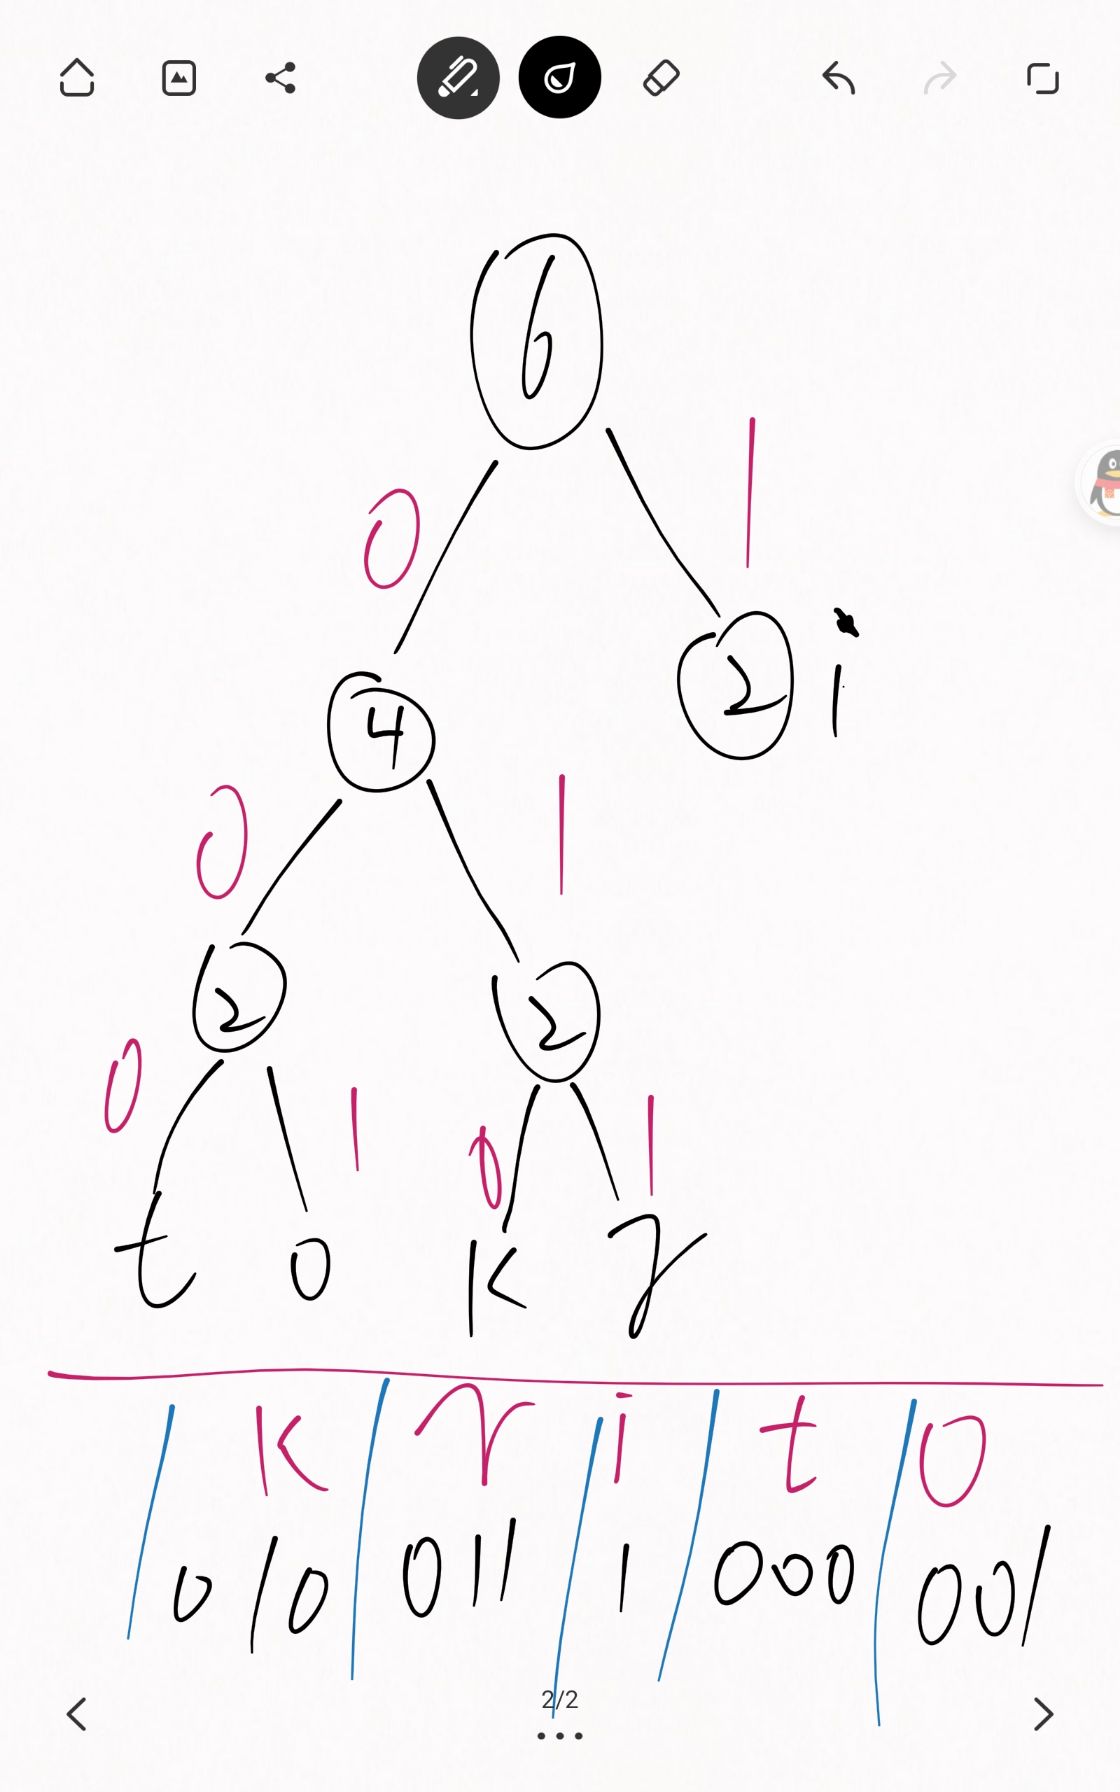 6
0 1
4 2 i
0 1
2 2
0 1 0 1
t o k r
k r i t o
010 011 1 000 001
2/2